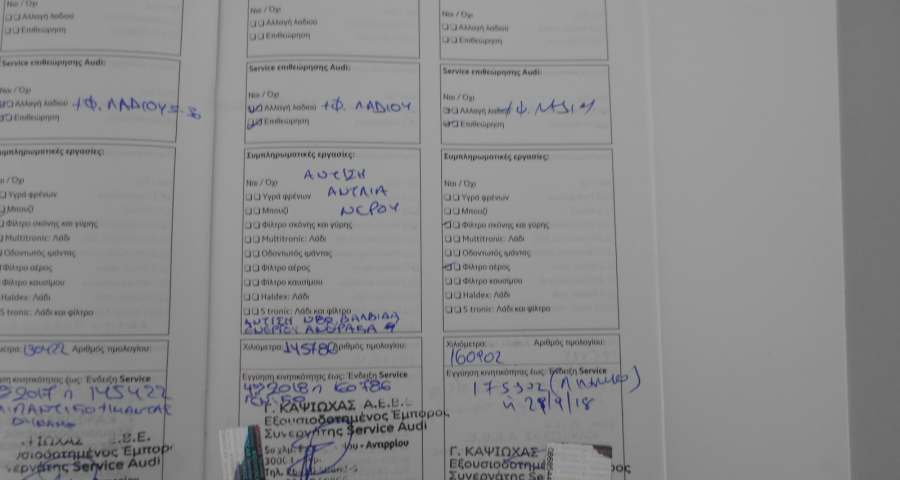 Ναι / Όχι
Αλλαγή λαδιού
Επιθεώρηση
Service επιθεώρησης Audi:
Ναι / Όχι
Αλλαγή λαδιού +Φ. ΛΑΔΙΟΥ 5-30
Επιθεώρηση
Συμπληρωματικές εργασίες:
Ναι / Όχι
Υγρά φρένων
Μπουζί
Φίλτρο σκόνης και γύρης
Multitronic: Λάδι
Οδοντωτός ιμάντας
Φίλτρο αέρος
Φίλτρο καυσίμου
Haldex: Λάδι
S tronic: Λάδι και φίλτρο
130422 Αριθμός τιμολογίου:
Ένδειξη Service
2017 ή 145422
Α.Ε.Β.Ε.
Service Audi
Ναι / Όχι
Αλλαγή λαδιού
Επιθεώρηση
Service επιθεώρησης Audi:
Ναι / Όχι
Αλλαγή λαδιού +Φ. ΛΑΔΙΟΥ
Επιθεώρηση
Συμπληρωματικές εργασίες:
Ναι / Όχι
Υγρά φρένων ΑΝΤΛΙΑ
Μπουζί ΝΕΡΟΥ
Φίλτρο σκόνης και γύρης
Multitronic: Λάδι
Οδοντωτός ιμάντας
Φίλτρο αέρος
Φίλτρο καυσίμου
Haldex: Λάδι
S tronic: Λάδι και φίλτρο
Χιλιόμετρα: 145786 Αριθμός τιμολογίου:
Εγγύηση κινητικότητας έως: Ένδειξη Service
2018 ή 160786
Γ. ΚΑΨΙΩΧΑΣ Α.Ε.Β.Ε.
Εξουσιοδοτημένος Έμπορος
Συνεργάτης Service Audi
Αντιρρίου
Ναι / Όχι
Αλλαγή λαδιού
Επιθεώρηση
Service επιθεώρησης Audi:
Ναι / Όχι
Αλλαγή λαδιού
Επιθεώρηση
Συμπληρωματικές εργασίες:
Ναι / Όχι
Υγρά φρένων
Μπουζί
Φίλτρο σκόνης και γύρης
Multitronic: Λάδι
Οδοντωτός ιμάντας
Φίλτρο αέρος
Φίλτρο καυσίμου
Haldex: Λάδι
S tronic: Λάδι και φίλτρο
Χιλιόμετρα: Αριθμός τιμολογίου:
160902
Εγγύηση κινητικότητας έως: Ένδειξη Service
ή 28/9/18
Γ. ΚΑΨΙΩΧΑΣ